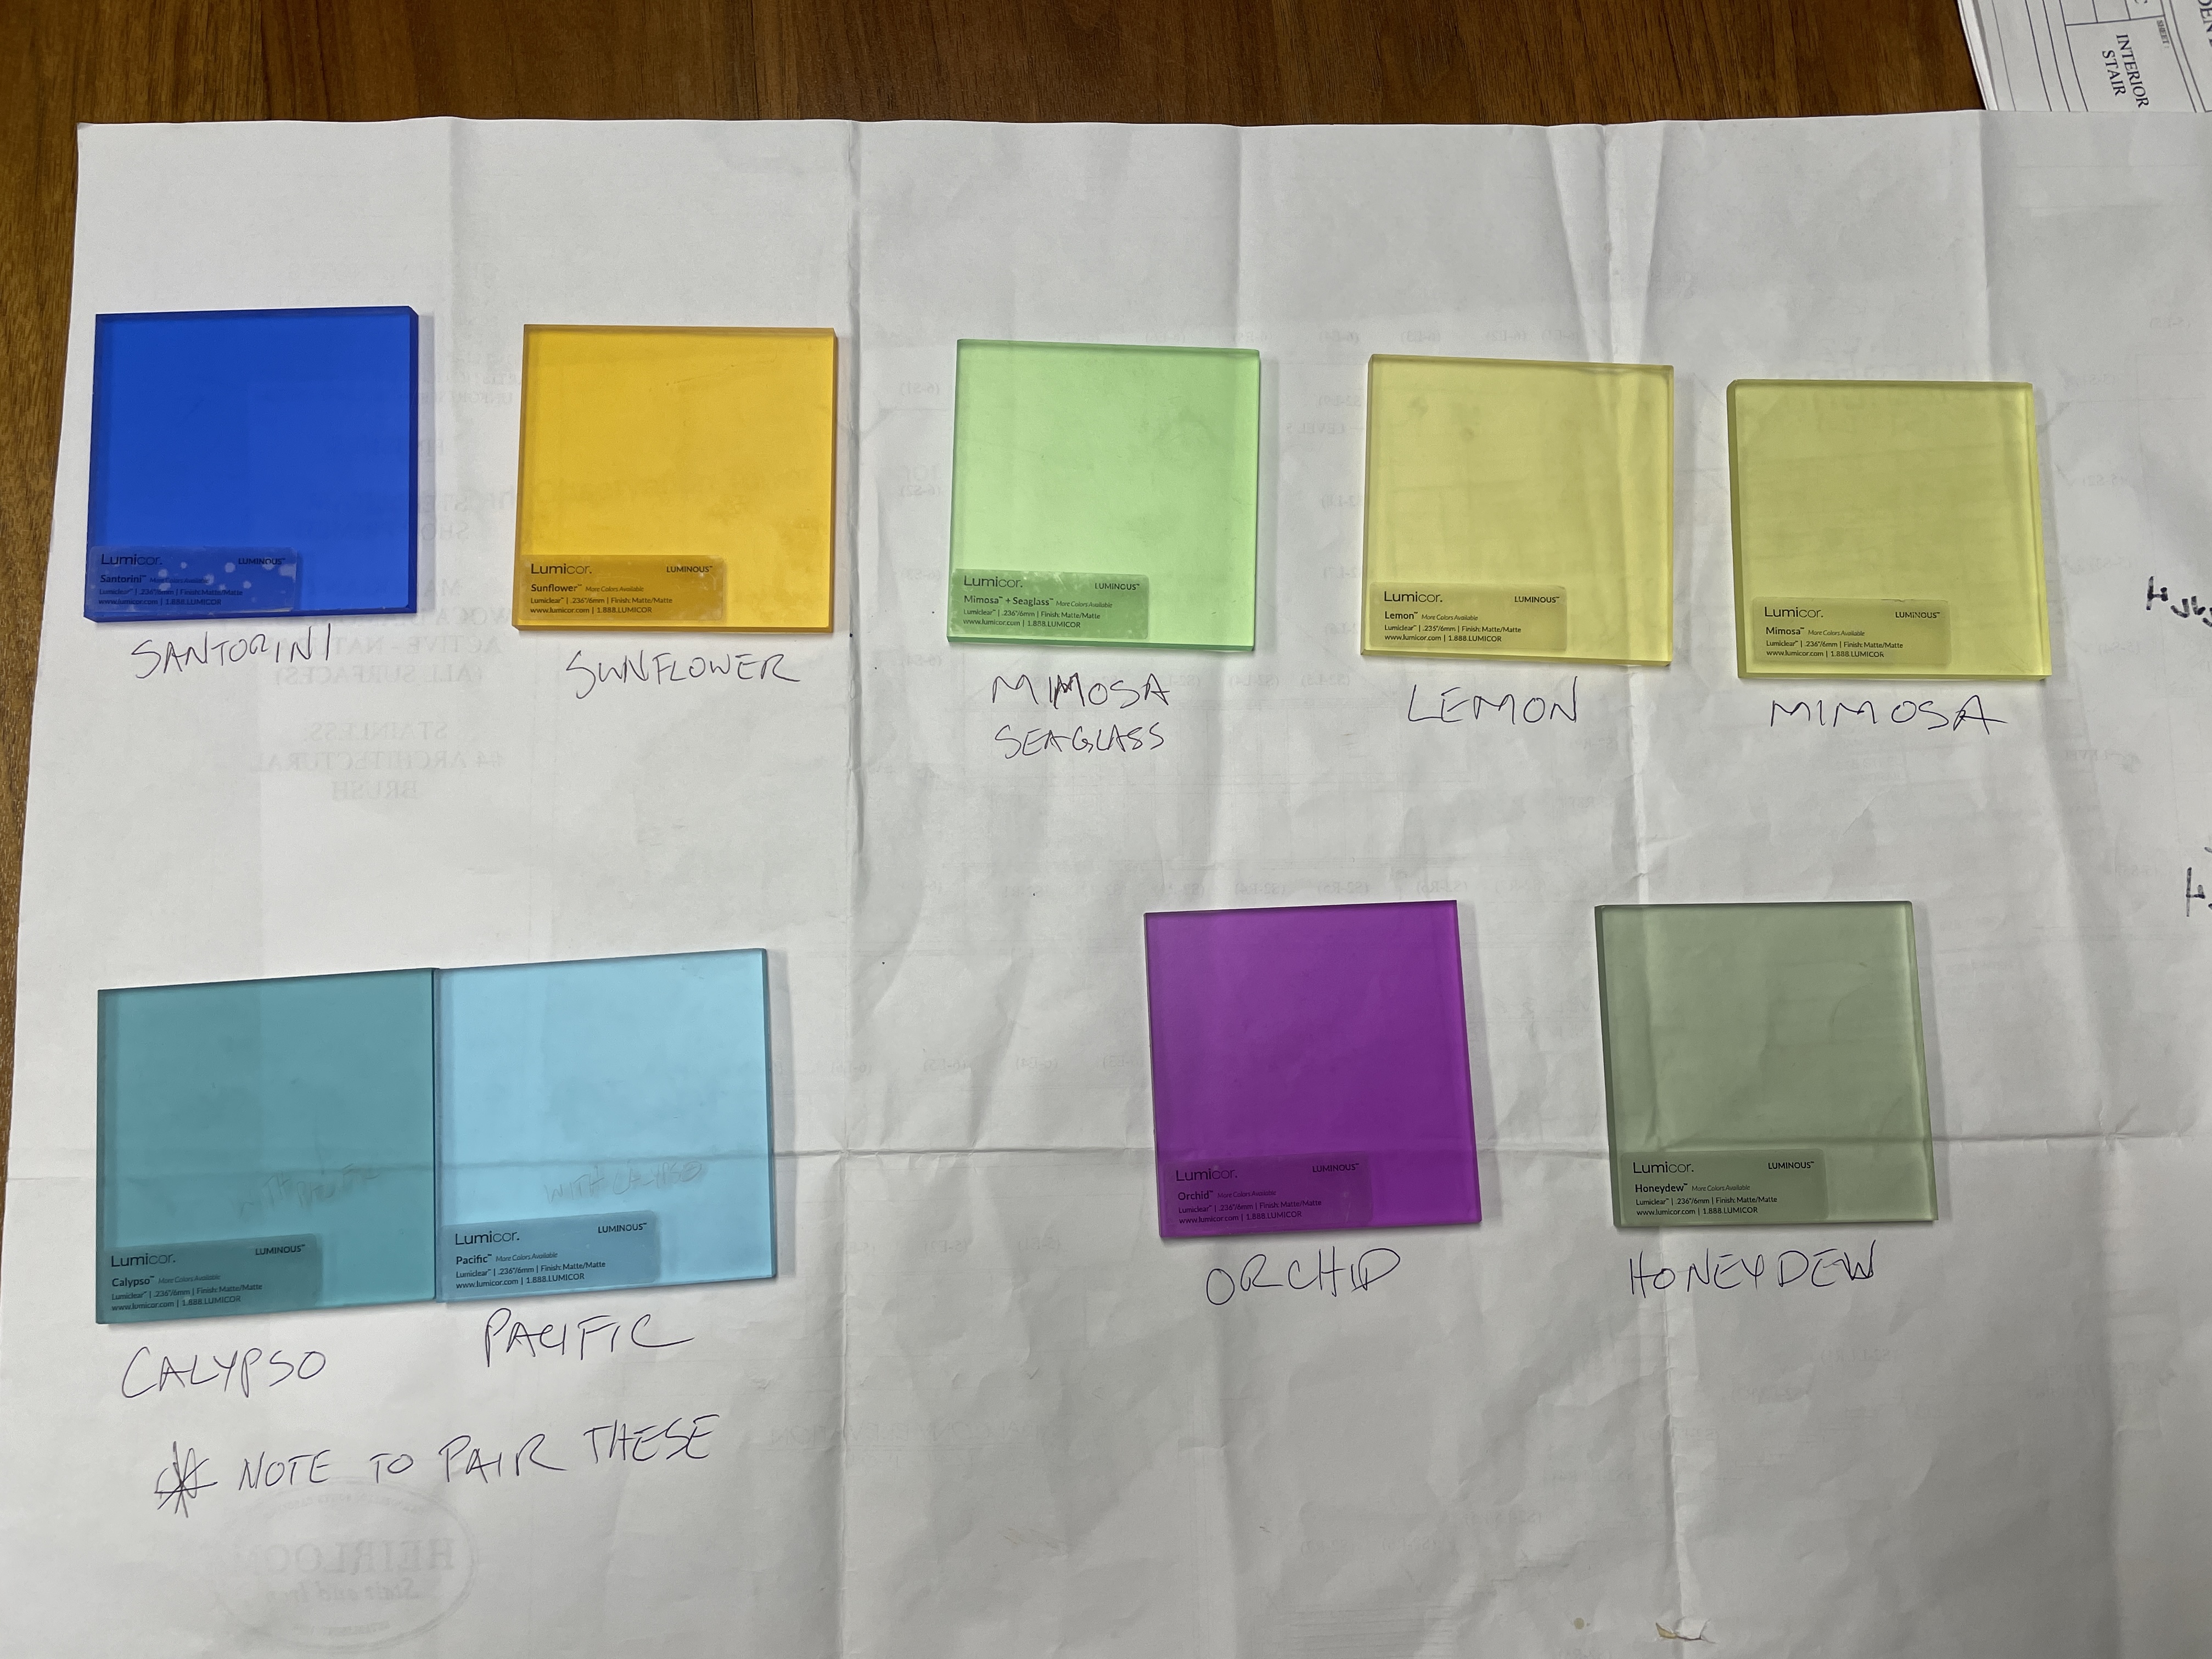 SHEET:
INTERIOR
STAIR
Lumicor. LUMINOUS™
Santorini™ More Colors Available
Lumiclear™ | .236"/6mm | Finish: Matte/Matte
www.lumicor.com | 1.888.LUMICOR
SANTORINI
Lumicor. LUMINOUS™
Sunflower™ More Colors Available
Lumiclear™ | .236"/6mm | Finish: Matte/Matte
www.lumicor.com | 1.888.LUMICOR
SUNFLOWER
Lumicor. LUMINOUS™
Mimosa™ + Seaglass™ More Colors Available
Lumiclear™ | .236"/6mm | Finish: Matte/Matte
www.lumicor.com | 1.888.LUMICOR
MIMOSA
SEAGLASS
Lumicor. LUMINOUS™
Lemon™ More Colors Available
Lumiclear™ | .236"/6mm | Finish: Matte/Matte
www.lumicor.com | 1.888.LUMICOR
LEMON
Lumicor. LUMINOUS™
Mimosa™ More Colors Available
Lumiclear™ | .236"/6mm | Finish: Matte/Matte
www.lumicor.com | 1.888.LUMICOR
MIMOSA
STAINLESS:
#4 ARCHITECTURAL
BRUSH
Lumicor. LUMINOUS™
Calypso™ More Colors Available
Lumiclear™ | .236"/6mm | Finish: Matte/Matte
www.lumicor.com | 1.888.LUMICOR
CALYPSO
WITH CALYPSO
Lumicor. LUMINOUS™
Pacific™ More Colors Available
Lumiclear™ | .236"/6mm | Finish: Matte/Matte
www.lumicor.com | 1.888.LUMICOR
PACIFIC
* NOTE TO PAIR THESE
Lumicor. LUMINOUS™
Orchid™ More Colors Available
Lumiclear™ | .236"/6mm | Finish: Matte/Matte
www.lumicor.com | 1.888.LUMICOR
ORCHID
Lumicor. LUMINOUS™
Honeydew™ More Colors Available
Lumiclear™ | .236"/6mm | Finish: Matte/Matte
www.lumicor.com | 1.888.LUMICOR
HONEYDEW
HEIRLOOM
Stair and Iron